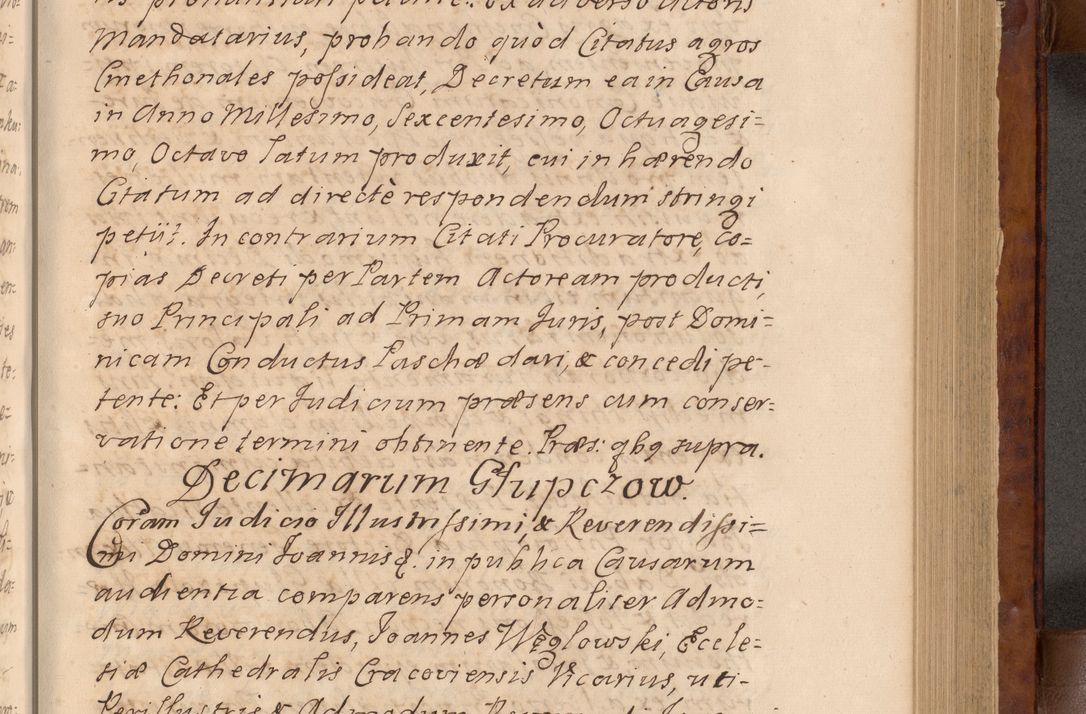 Mandatarius, probando quòd Citatus agros
Cmethonales possideat, Decretum ea in Causa
in Anno Millesimo, Sexcentesimo, Octuagesi=
mo, Octavo latum produxit, cui in hærendo
Citatum ad directè respondendum stringi
petijt. In contrarium Citati Procuratore, Co=
pias Decreti per Partem Actoream producti,
suo Principali ad Primam Juris, post Domi=
nicam Conductus Paschæ dari, & concedi pe-
tente: Et per Judicium præsens cum conser=
vatione termini obtinente. Præs: qbq supra.
Decimarum Głupczow.
Coram Judicio Illustrissimi, & Reverendissi=
mi Domini Joannis &. in publica Causarum
audientia comparens personaliter Admo=
dum Reverendus, Joannes Węglowski, Eccle=
siæ Cathedralis Cracoviensis Vicarius, uti-
Perillustris & Admodum